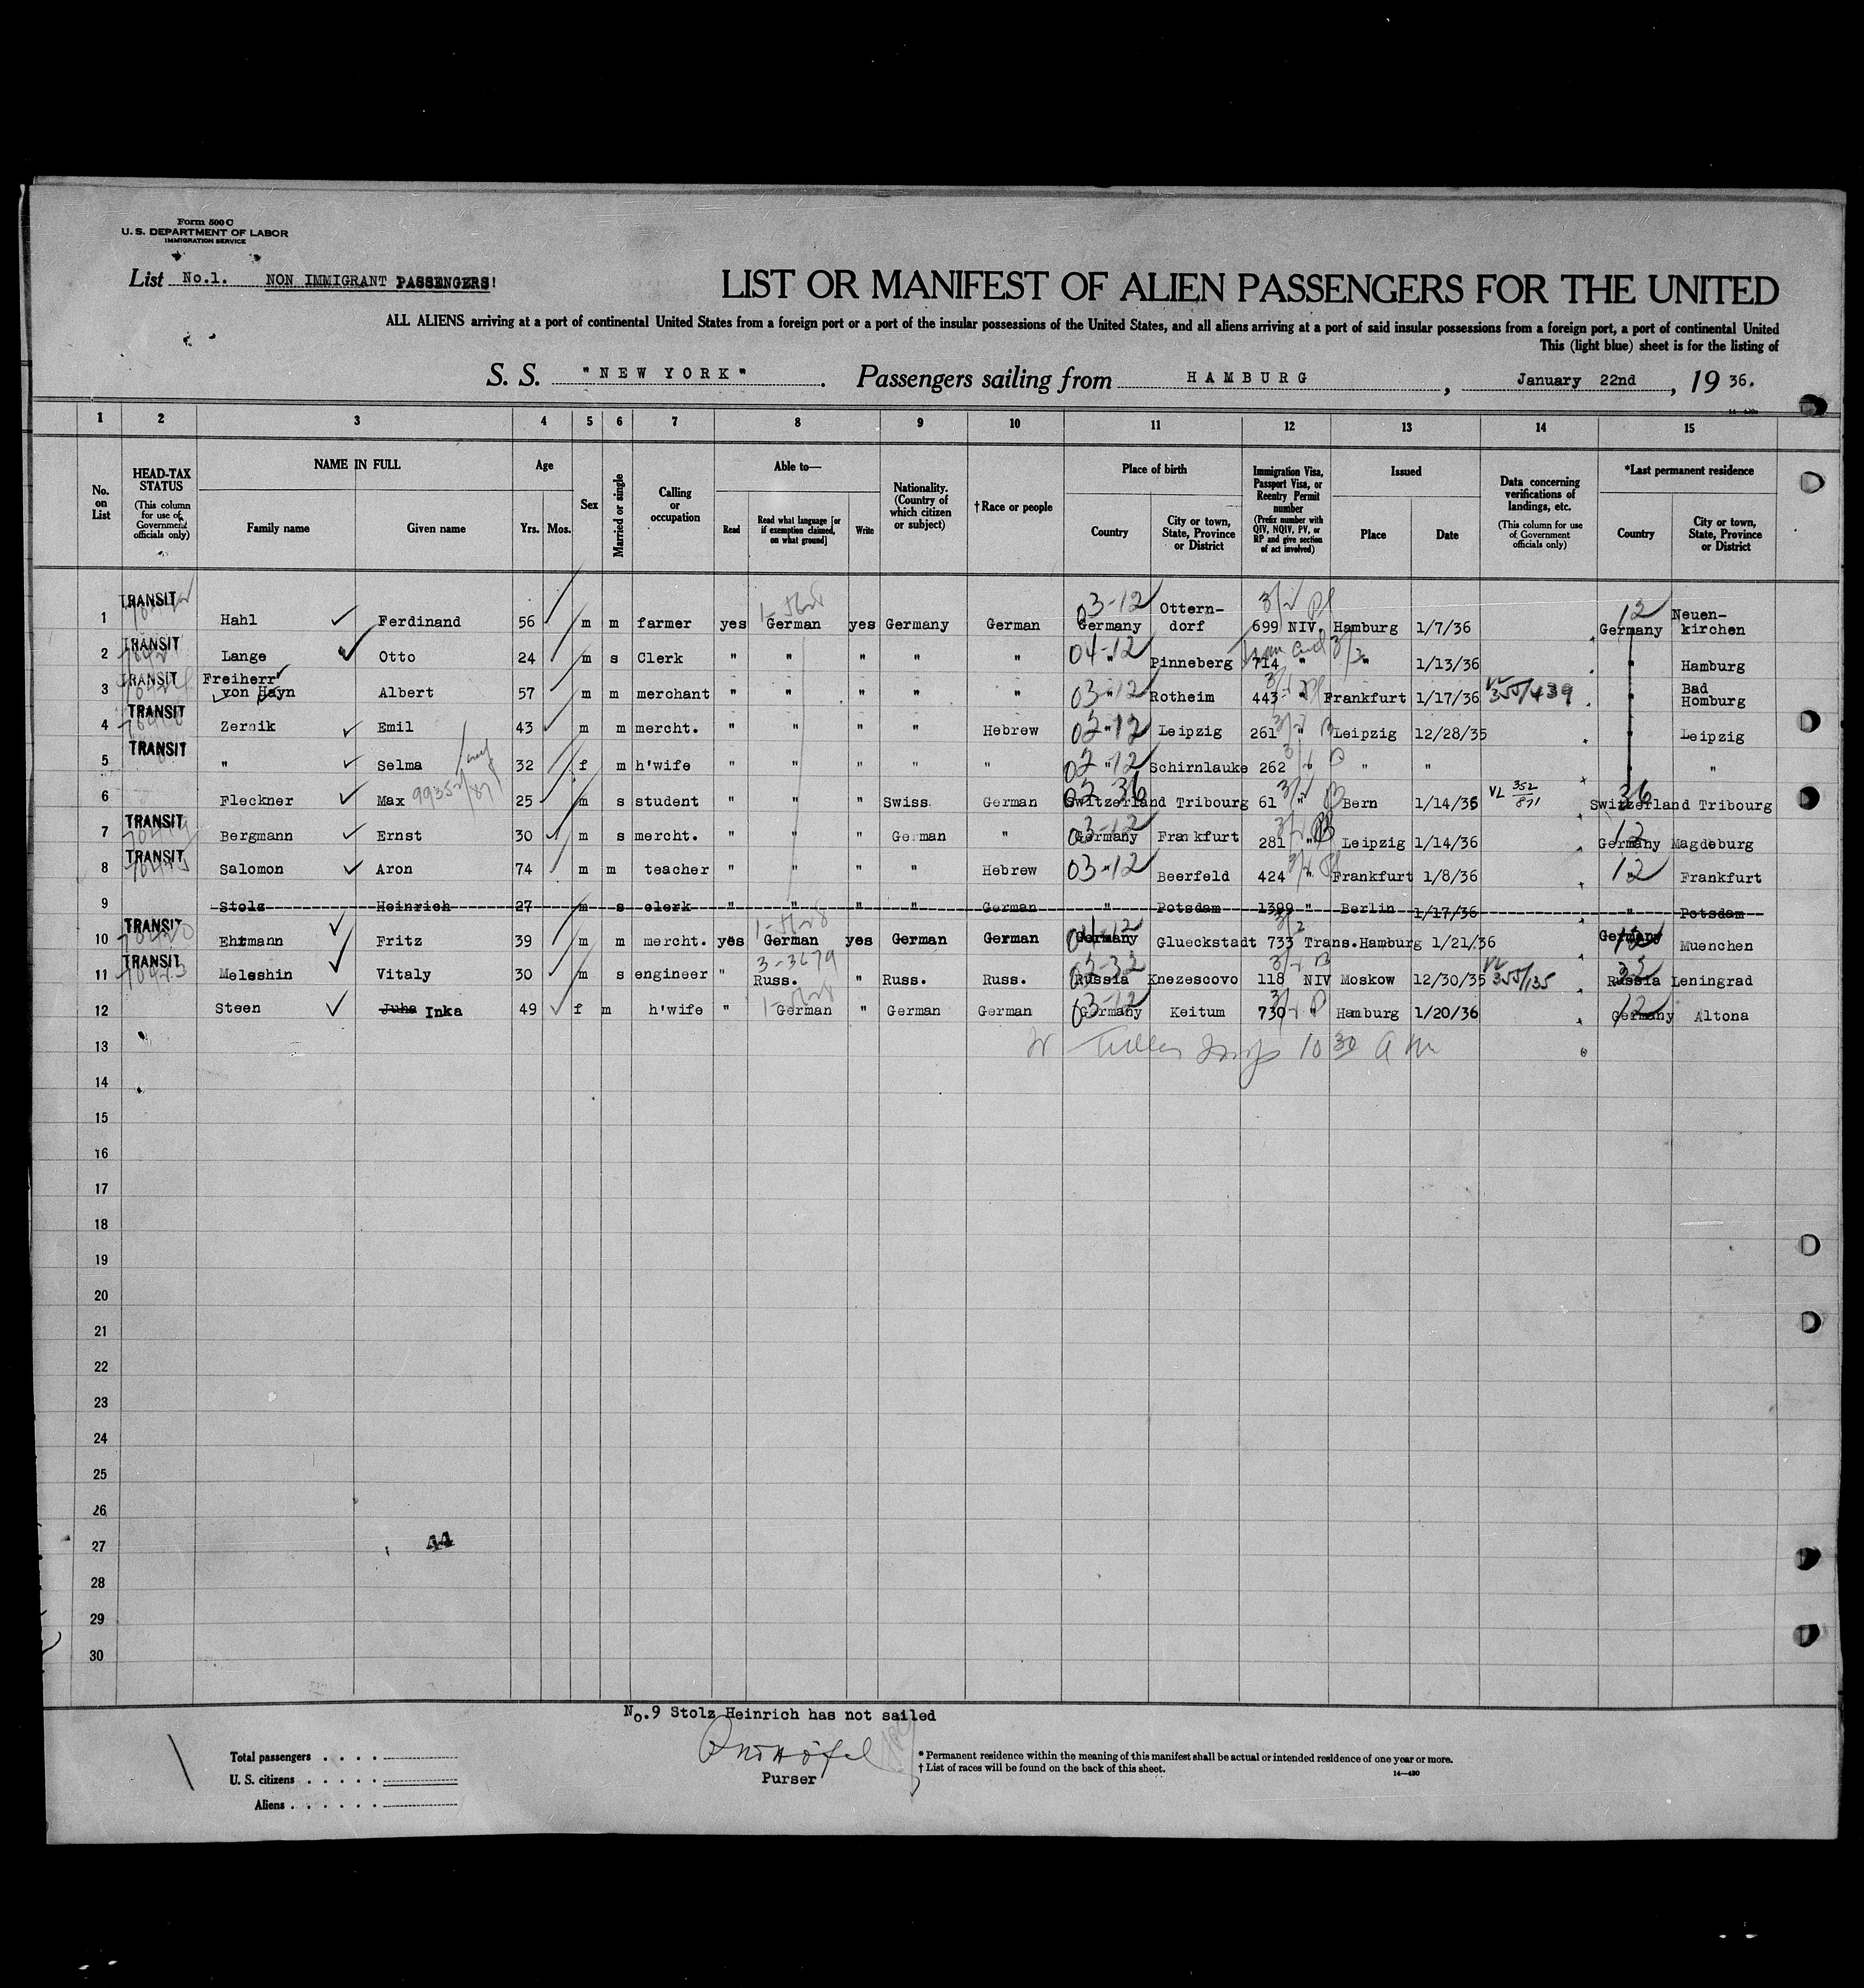 Form 500 C
U. S. DEPARTMENT OF LABOR
IMMIGRATION SERVICE
List No.1. NON IMMIGRANT PASSENGERS!
LIST OR MANIFEST OF ALIEN PASSENGERS FOR THE UNITED
ALL ALIENS arriving at a port of continental United States from a foreign port or a port of the insular possessions of the United States, and all aliens arriving at a port of said insular possessions from a foreign port, a port of continental United
This (light blue) sheet is for the listing of
S. S. "NEW YORK". Passengers sailing from HAMBURG, January 22nd, 19 36.
14-430
1 2 3 4 5 6 7 8 9 10 11 12 13 14 15
No. on List
HEAD-TAX STATUS (This column for use of Government officials only)
NAME IN FULL Family name Given name
Age Yrs. Mos.
Sex
Married or single
Calling or occupation
Able to— Read Read what language [or if exemption claimed, on what ground] Write
Nationality. (Country of which citizen or subject)
† Race or people
Place of birth Country City or town, State, Province or District
Immigration Visa, Passport Visa, or Reentry Permit number (Prefix number with QIV, NQIV, PV, or RP and give section of act involved)
Issued Place Date
Data concerning verifications of landings, etc. (This column for use of Government officials only)
*Last permanent residence Country City or town, State, Province or District
1 TRANSIT Hahl Ferdinand 56 m m farmer yes German yes Germany German 03-12 Germany Ottern-dorf 699 NIV. Hamburg 1/7/36 12 Germany Neuen-kirchen
2 TRANSIT Lange Otto 24 m s Clerk " " " " " 04-12 " Pinneberg 714 " " 1/13/36 " Hamburg
3 TRANSIT Freiherr von Hayn Albert 57 m m merchant " " " " " 03-12 " Rotheim 443 " Frankfurt 1/17/36 VL 355/439 " Bad Homburg
4 TRANSIT Zernik Emil 43 m m mercht. " " " " Hebrew 02-12 " Leipzig 261 " Leipzig 12/28/35 " Leipzig
5 TRANSIT " Selma 32 f m h'wife " " " " " 02-12 " Schirnlauke 262 " " " " "
6 Fleckner Max 25 m s student " " " Swiss German Switzerland Tribourg 61 " Bern 1/14/36 VL 352/871 36 Switzerland Tribourg
7 TRANSIT Bergmann Ernst 30 m s mercht. " " " German " 03-12 Germany Frankfurt 281 " Leipzig 1/14/36 12 Germany Magdeburg
8 TRANSIT Salomon Aron 74 m m teacher " " " " Hebrew 03-12 " Beerfeld 424 " Frankfurt 1/8/36 12 " Frankfurt
9 Stolz Heinrich 27 m s clerk " " " " German " Potsdam 1399 " Berlin 1/17/36 " Potsdam
10 TRANSIT Ehtmann Fritz 39 m m mercht. yes German yes German German Germany Glueckstadt 733 Trans. Hamburg 1/21/36 Germany Muenchen
11 TRANSIT Meleshin Vitaly 30 m s engineer " 3-3679 Russ. " Russ. Russ. Russia Knezescovo 118 NIV Moskow 12/30/35 VL 355/135 Russia Leningrad
12 Steen Juha Inka 49 f m h'wife " German " German German 03-12 Germany Keitum 730 " Hamburg 1/20/36 12 Germany Altona
13
14
15
16
17
18
19
20
21
22
23
24
25
26
27
28
29
30
No.9 Stolz Heinrich has not sailed
Purser
Total passengers
U. S. citizens
Aliens
* Permanent residence within the meaning of this manifest shall be actual or intended residence of one year or more.
† List of races will be found on the back of this sheet.
14-430